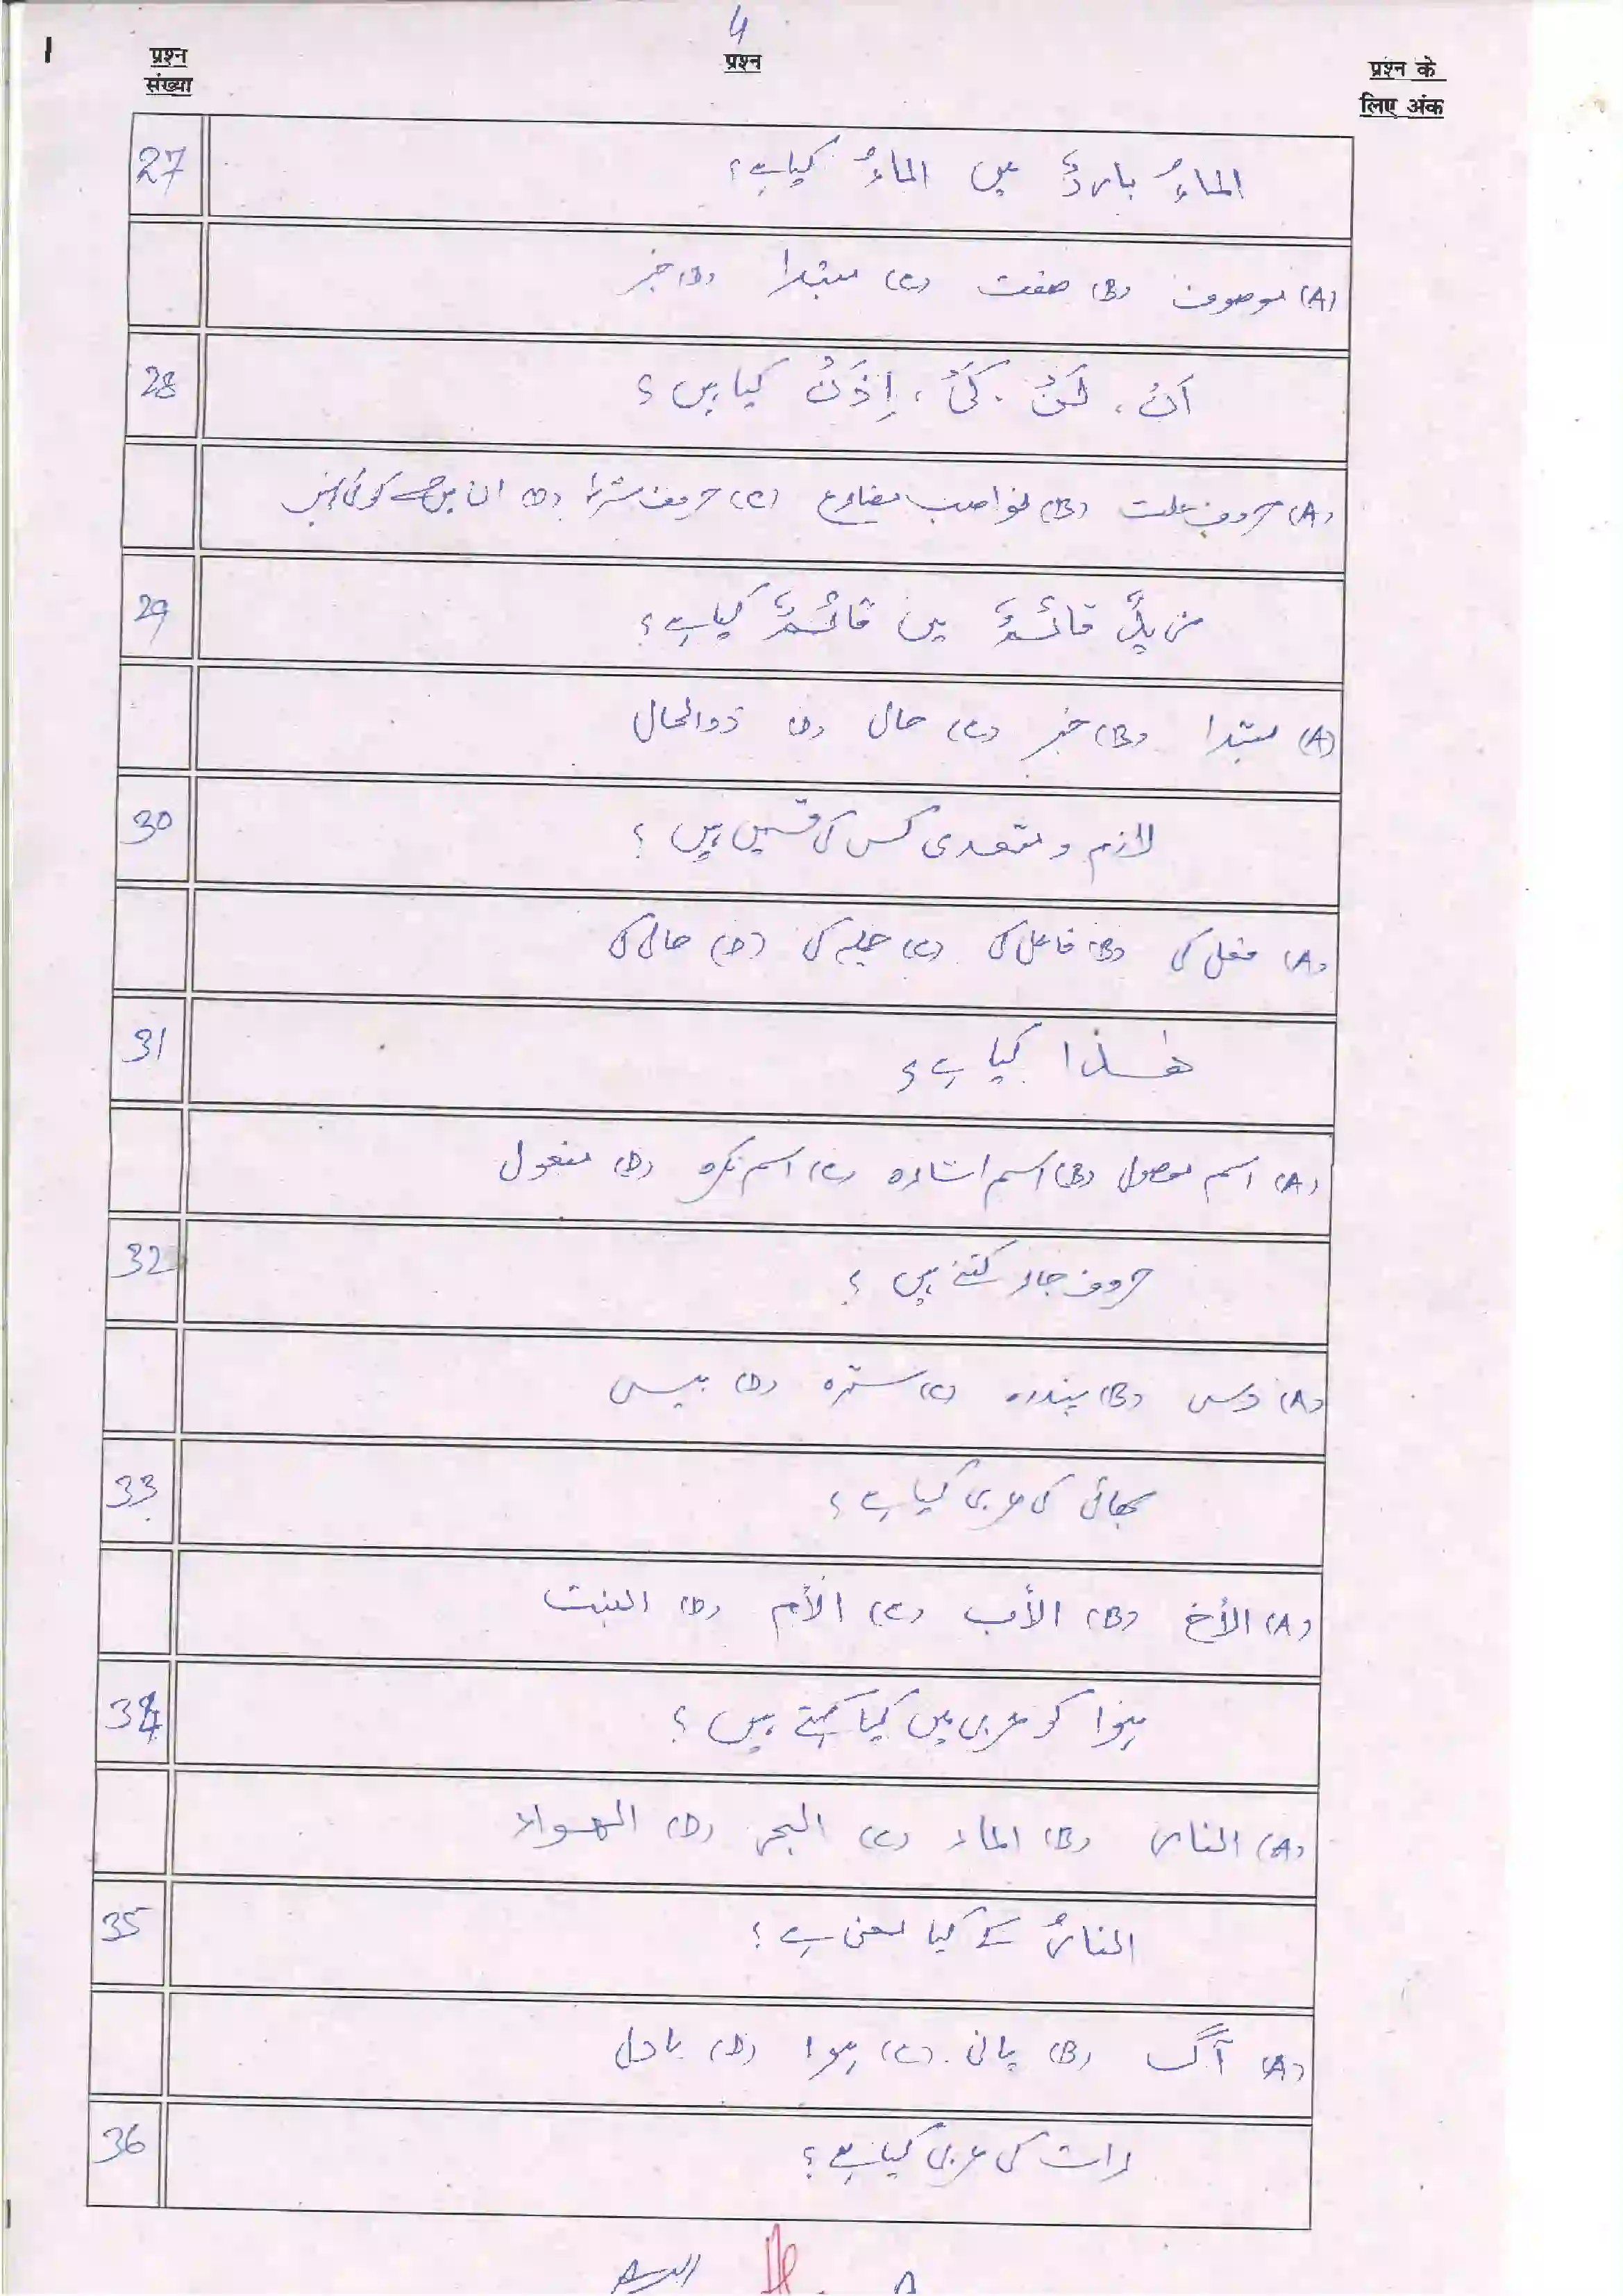 4
प्रश्न संख्या
प्रश्न
प्रश्न के लिए अंक
27
الماءُ باردٌ میں الماءُ کیا ہے؟
(A) موصوف (B) صفت (C) مبتدا (D) خبر
28
اَنْ ، لَنْ ، کَیْ ، اِذَنْ کیا ہیں ؟
(A) حروف علت (B) نواصب مضارع (C) حروف شرط (D) ان میں سے کوئی نہیں
29
زیدٌ قائمٌ میں قائمٌ کیا ہے ؟
(A) مبتدا (B) خبر (C) حال (D) ذوالحال
30
لازم و متعدی کس کی قسمیں ہیں ؟
(A) فعل کی (B) فاعل کی (C) جملے کی (D) حال کی
31
ھٰذا کیا ہے ؟
(A) اسم موصول (B) اسم اشارہ (C) اسم نکرہ (D) مفعول
32
حروف جار کتنے ہیں ؟
(A) دس (B) پندرہ (C) سترہ (D) بیس
33
بھائی کی عربی کیا ہے ؟
(A) الأخ (B) الأب (C) الأم (D) البنت
34
ہوا کو عربی میں کیا کہتے ہیں ؟
(A) النار (B) الماء (C) البحر (D) الهواء
35
النارُ کے کیا معنی ہے ؟
(A) آگ (B) پانی (C) ہوا (D) بادل
36
رات کی عربی کیا ہے ؟